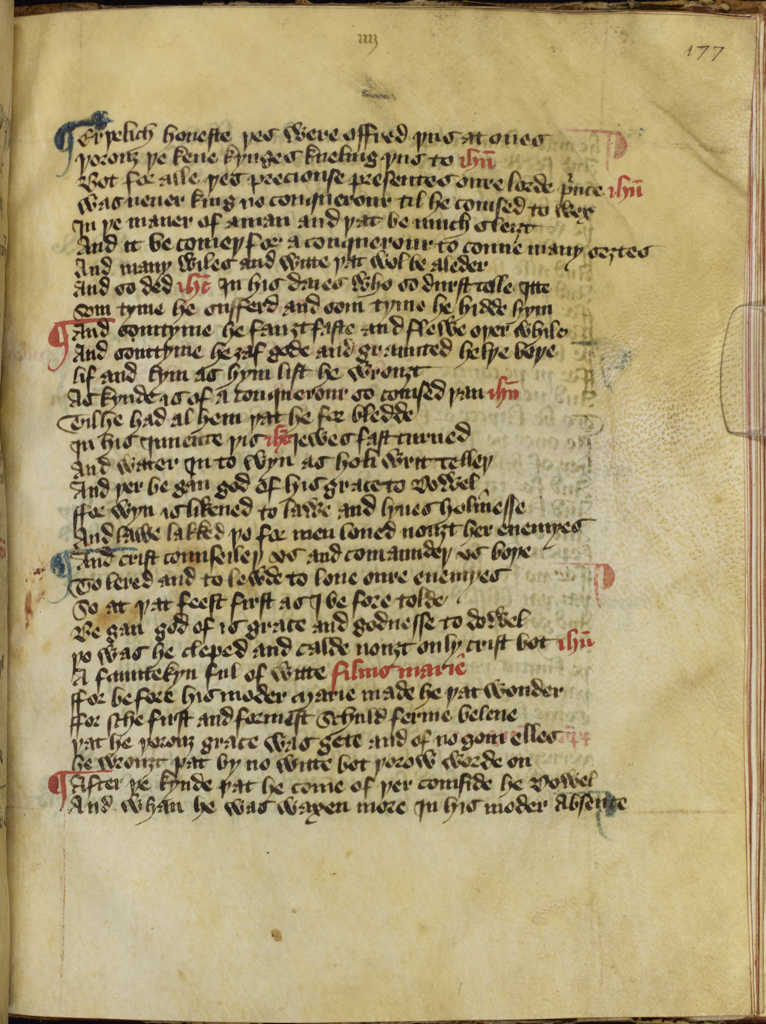 iiij
177
¶ Erþelich honeste þes were offred þus at ones
þorouȝ þe kene kynges kneling þus to ihũ
Bot for alle þes preciouse presentes oure lorde p̃nce ihũ
was neuer king no conquerour til he comsed to wex
In þe maner of aman and þat be mich sleiȝt
And it be comeþ for a conquerour to conne many seȝtes
And many wiles and witte þat wol be aleder
And so ded ihc̃ in his daies who so durst telle itte
Som tyme he sufferd and som tyme he hidde hym
¶ And somtyme he fauȝt faste and flewe oþer while
And somtyme he ȝaf gode and graunted hele boþe
lif and lym as hym list he wrouȝt
As kynde is of a conquerour so comsed þan ihũ
Til he had al hem þat he for bledde
In his iuuente þis ihc̃ iewes fast turned
And water in to wyn as holi writ telleþ
And þer be gan god of his grace to dowel
ffor wyn is likened to lawe and lyues holinesse
And lawe lakked þo for men loued nouȝt her enemyes
¶ And crist counseileþ vs and comaundeþ vs boþe
To lered and to lewde to loue oure enemyes
So at þat feest first as I be fore tolde
Be gan god of is grace and godnesse to dowel
þo was he cleped and calde nouȝt only crist bot ihũ
A fauntekyn ful of witte filius marie
ffor be fore his moder marie made he þat wonder
ffor sche first and formest schuld ferme beleue
þat he þorouȝ grace was gete and of no gom elles
he wrouȝt þat by no witte bot þorow worde on
¶ After þe kynde þat he come of þer comside he dowel
And whan he was waxen more in his moder absence